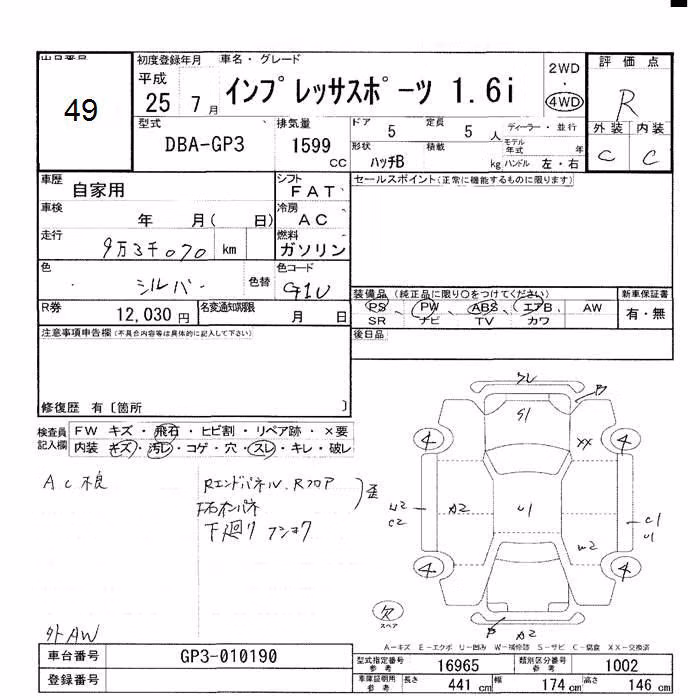 出品番号
49
初度登録年月
平成
25 7月
車名・グレード
インプレッサスポーツ 1.6i
2WD
・
4WD
評価点
R
外装 内装
C C
型式
DBA-GP3
排気量
1599
CC
ドア 5
定員 5 人
ディーラー・並行
形状
ハッチB
積載
kg
モデル年式 年
ハンドル 左・右
車歴
自家用
シフト
FAT
セールスポイント(正常に機能するものに限ります)
車検
年 月( 日)
冷房
AC
走行
9万3千070 km
燃料
ガソリン
色
シルバー
色替
色コード
G1U
装備品 (純正品に限り○をつけてください)
PS、PW、ABS、エアB、 AW
SR ナビ TV カワ
新車保証書
有・無
R券
12,030円
名変通知期限
月 日
後日品
注意事項申告欄(不具合内容等は具体的に記入して下さい)
修復歴 有〔箇所 〕
検査員
記入欄
FW キズ・飛石・ヒビ割・リペア跡・×要
内装 キズ・汚レ・コゲ・穴・スレ・キレ・破レ
AC不良
Rエンドパネル、Rフロア
下廻り フショク
歪
外AW
スレ
B
S1
XX
4
4
A2
U1
W2
C2
C1
U1
W2
4
4
欠
スペア
B A2
A-キズ E-エクボ U-凹み W-補修跡 S-サビ C-腐食 XX-交換済
車台番号
GP3-010190
登録番号
型式指定番号
参考
16965
類別区分番号
参考
1002
車庫証明用
参考
長さ 441 cm
幅 174 cm
高さ 146 cm